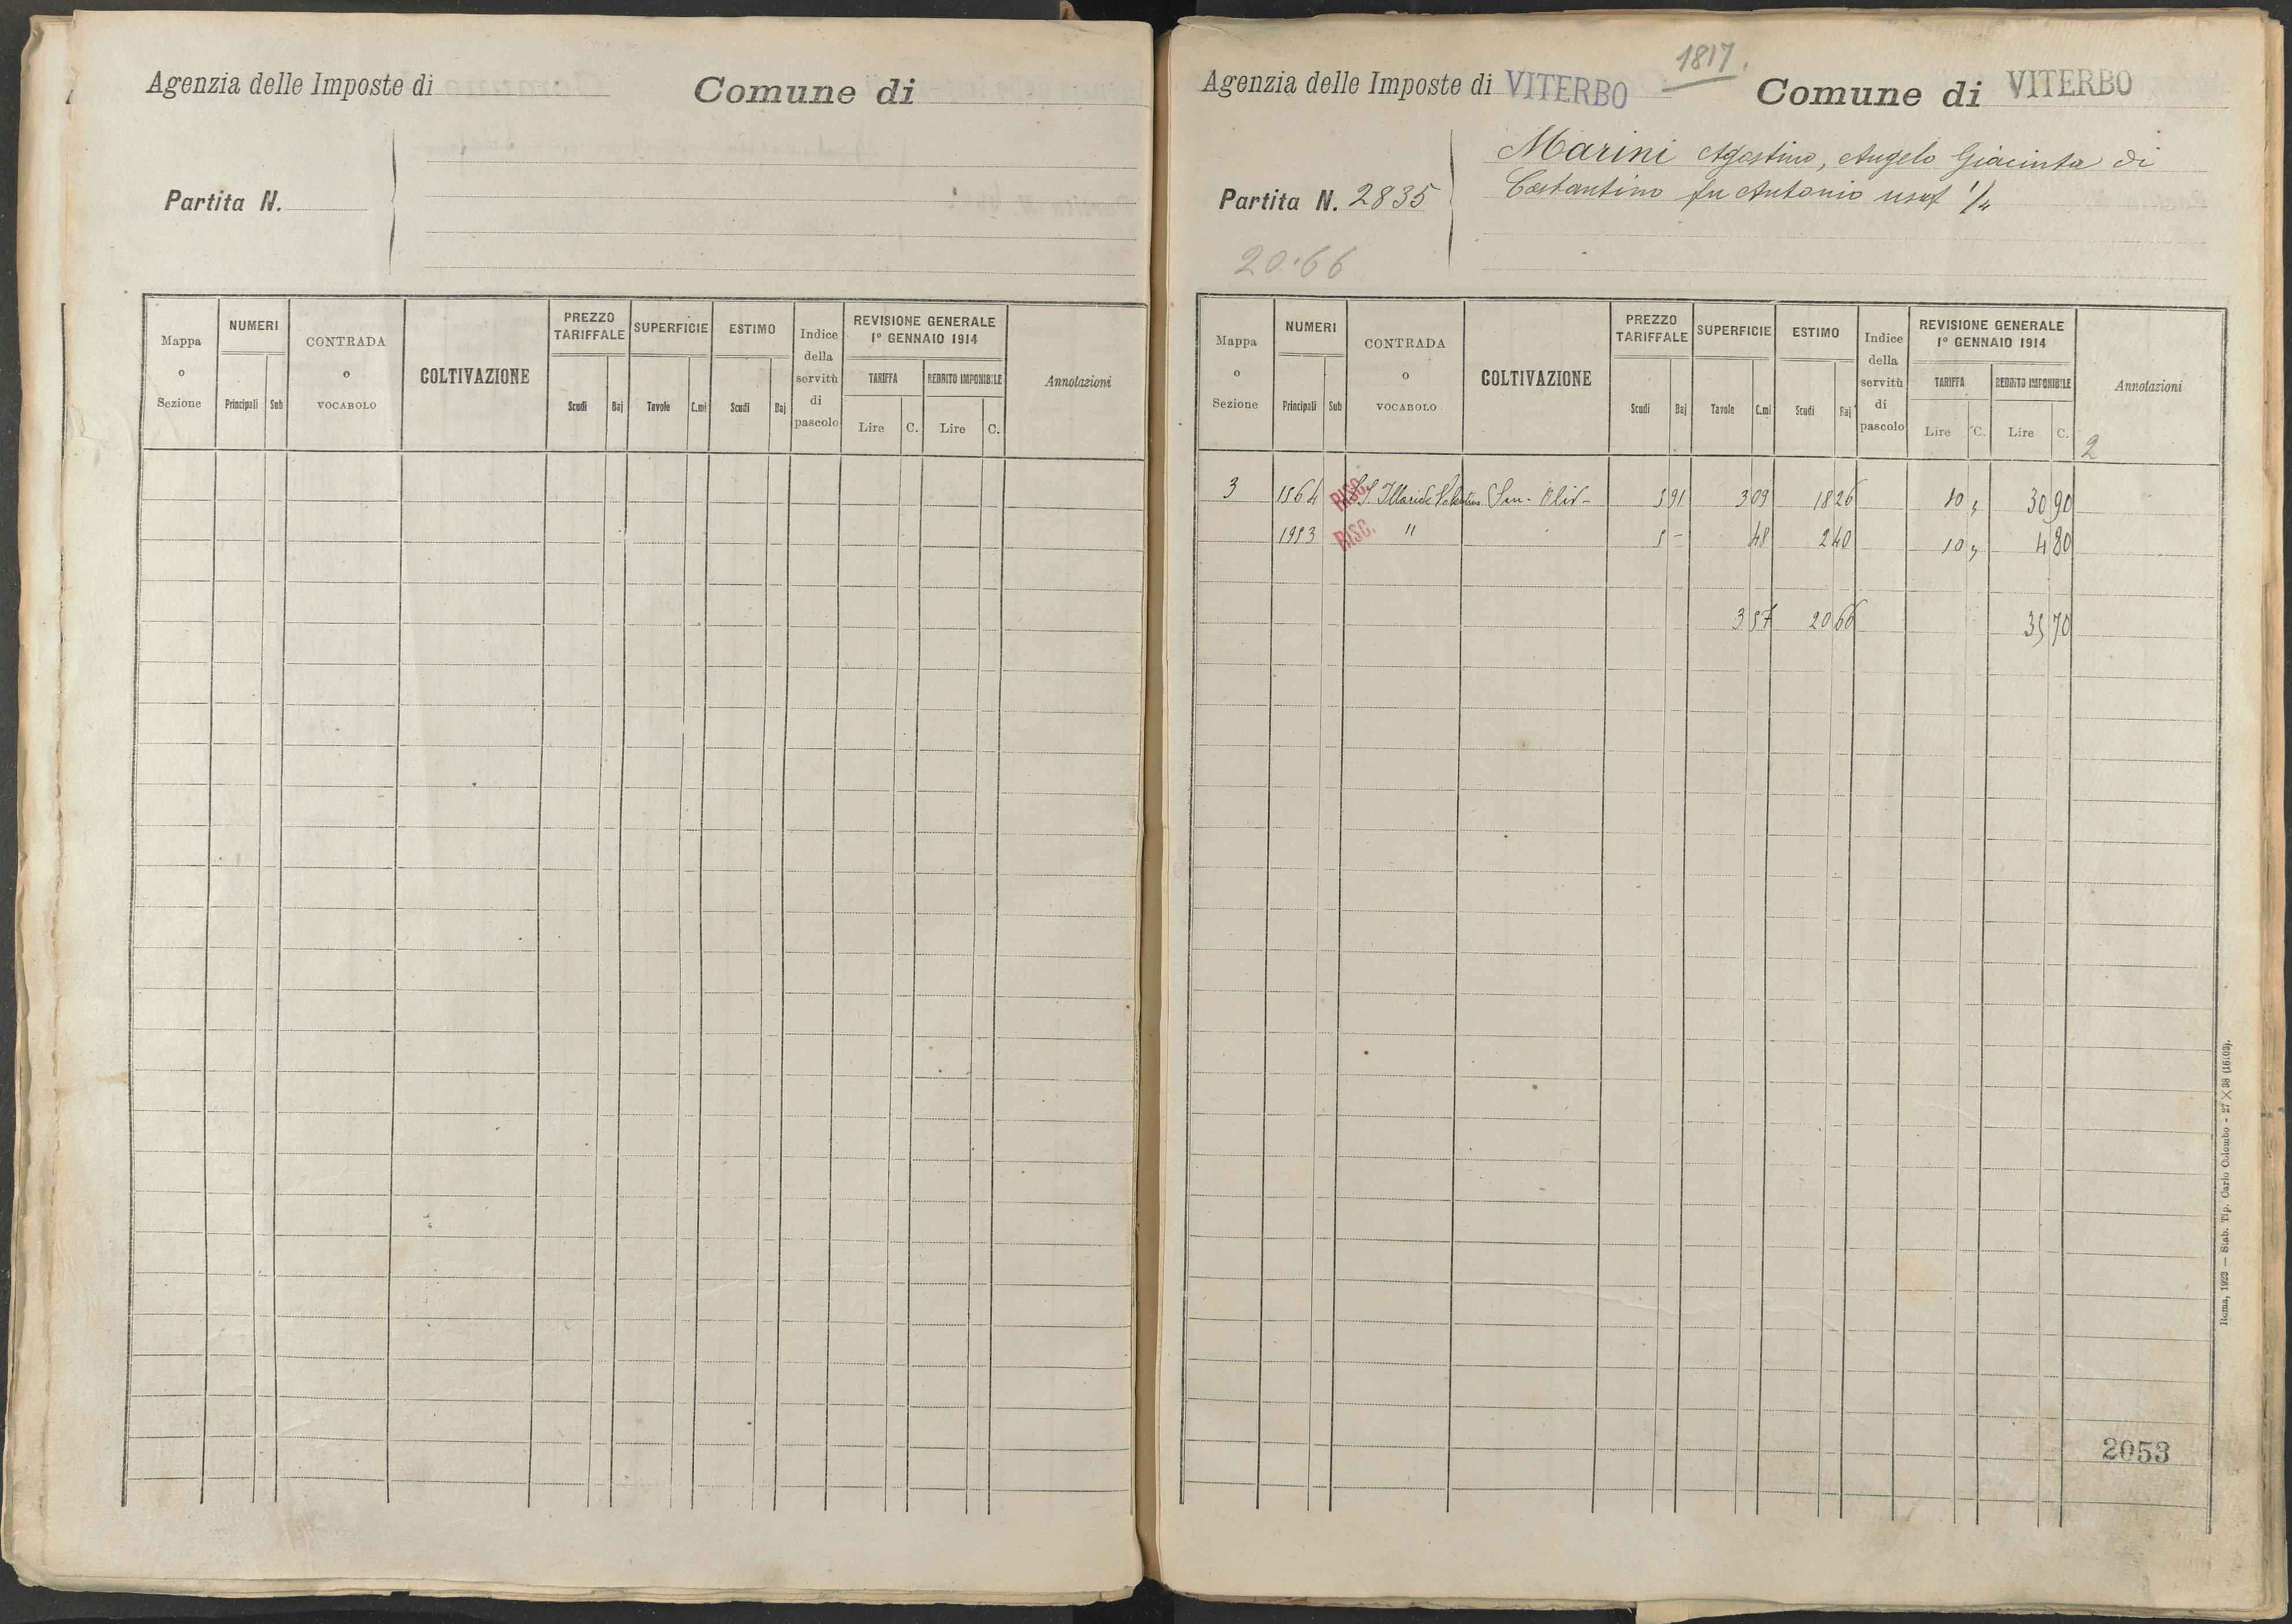 Agenzia delle Imposte di
Comune di
Partita N.
Mappa o Sezione
NUMERI
Principali Sub
CONTRADA o VOCABOLO
COLTIVAZIONE
PREZZO TARIFFALE
Scudi Baj
SUPERFICIE
Tavole C.mi
ESTIMO
Scudi Baj
Indice della servitù di pascolo
REVISIONE GENERALE
1° GENNAIO 1914
TARIFFA
Lire C.
REDDITO IMPONIBILE
Lire C.
Annotazioni
1817.
Agenzia delle Imposte di VITERBO
Comune di VITERBO
Marini Agostino, Angelo Giacinta di
Costantino fu Antonio usuf
Partita N. 2835
20.66
Mappa o Sezione
NUMERI
Principali Sub
CONTRADA o VOCABOLO
COLTIVAZIONE
PREZZO TARIFFALE
Scudi Baj
SUPERFICIE
Tavole C.mi
ESTIMO
Scudi Baj
Indice della servitù di pascolo
REVISIONE GENERALE
1° GENNAIO 1914
TARIFFA
Lire C.
REDDITO IMPONIBILE
Lire C.
Annotazioni
2
3 1564 RISC. 5 91 3 09 18 26 10 30 90
1953 RISC. " 5 - 48 2 40 10 4 80
3 57 20 66 35 70
2053
Roma, 1923 — Stab. Tip. Carlo Colombo - 27 × 38 (16103).